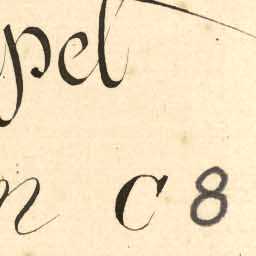 pet
n C 8